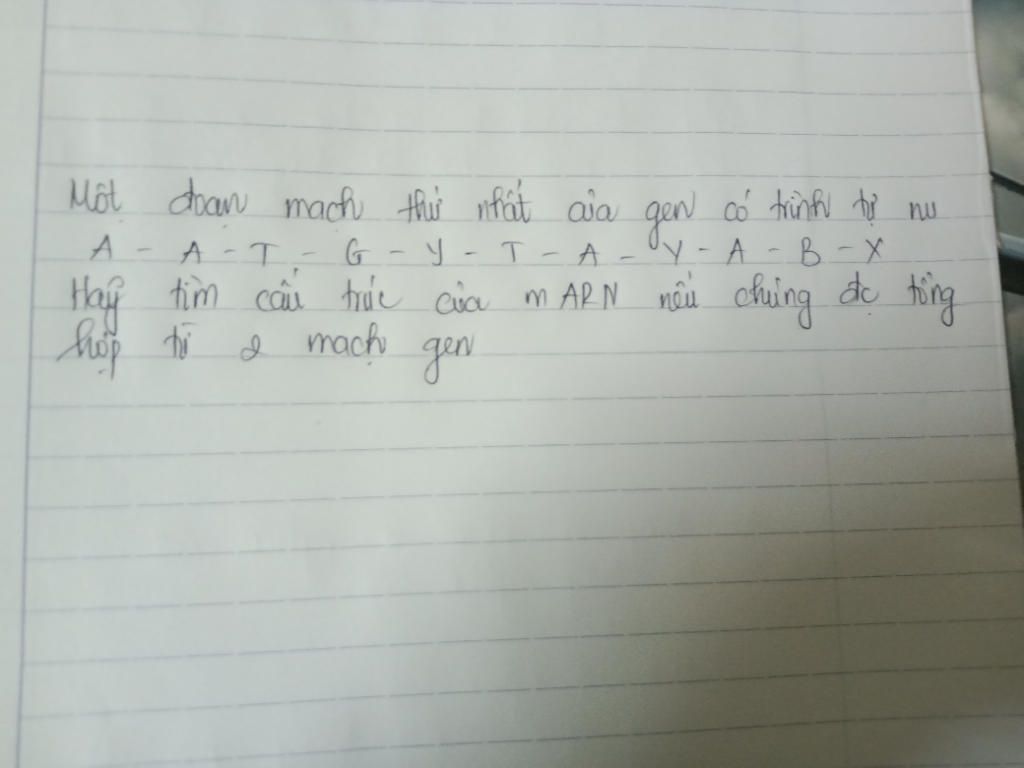 Một đoạn mạch thứ nhất của gen có trình tự nu
A - A - T - G - Y - T - A - Y - A - B - X
Hãy tìm cấu trúc của mARN nếu chúng đc tổng
hợp từ 2 mạch gen